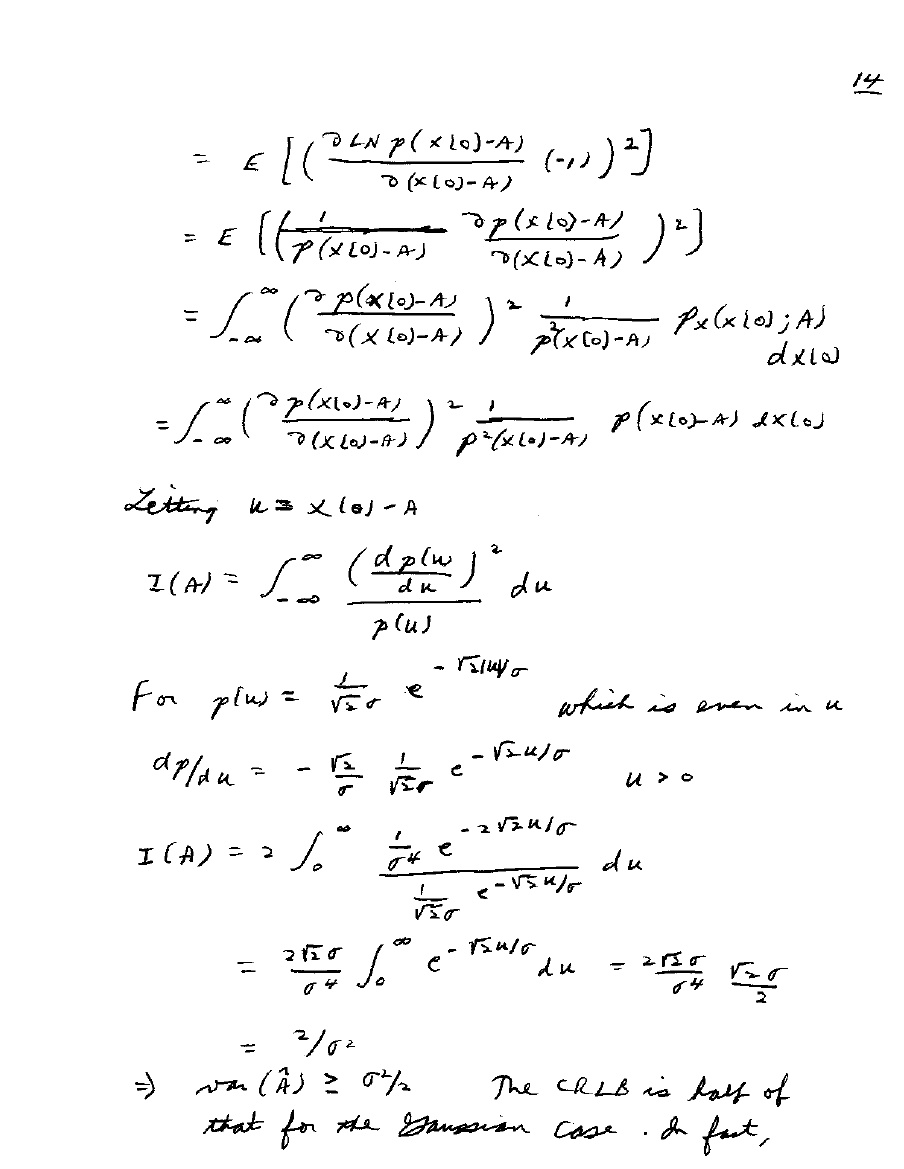 14
= E [ ( ∂ LN p(x[0]-A) / ∂(x[0]-A) (-1) )² ]
= E [ ( 1 / p(x[0]-A) ∂p(x[0]-A) / ∂(x[0]-A) )² ]
= ∫_{-∞}^{∞} ( ∂p(x[0]-A) / ∂(x[0]-A) )² 1 / p²(x[0]-A) p_x(x[0]; A)
dx[0]
= ∫_{-∞}^{∞} ( ∂p(x[0]-A) / ∂(x[0]-A) )² 1 / p²(x[0]-A) p(x[0]-A) dx[0]
Letting u = x[0] - A
I(A) = ∫_{-∞}^{∞} ( dp(u) / du )² / p(u) du
For p(u) = 1/(√2 σ) e^{-√2|u|/σ} which is even in u
dp/du = - √2/σ 1/(√2 σ) e^{-√2u/σ} u > 0
I(A) = 2 ∫_0^∞ ( 1/σ⁴ e^{-2√2u/σ} ) / ( 1/(√2 σ) e^{-√2u/σ} ) du
= 2√2σ/σ⁴ ∫_0^∞ e^{-√2u/σ} du = 2√2σ/σ⁴ √2σ/2
= 2/σ²
⇒ var(Â) ≥ σ²/2 The CRLB is half of
that for the Gaussian case. In fact,